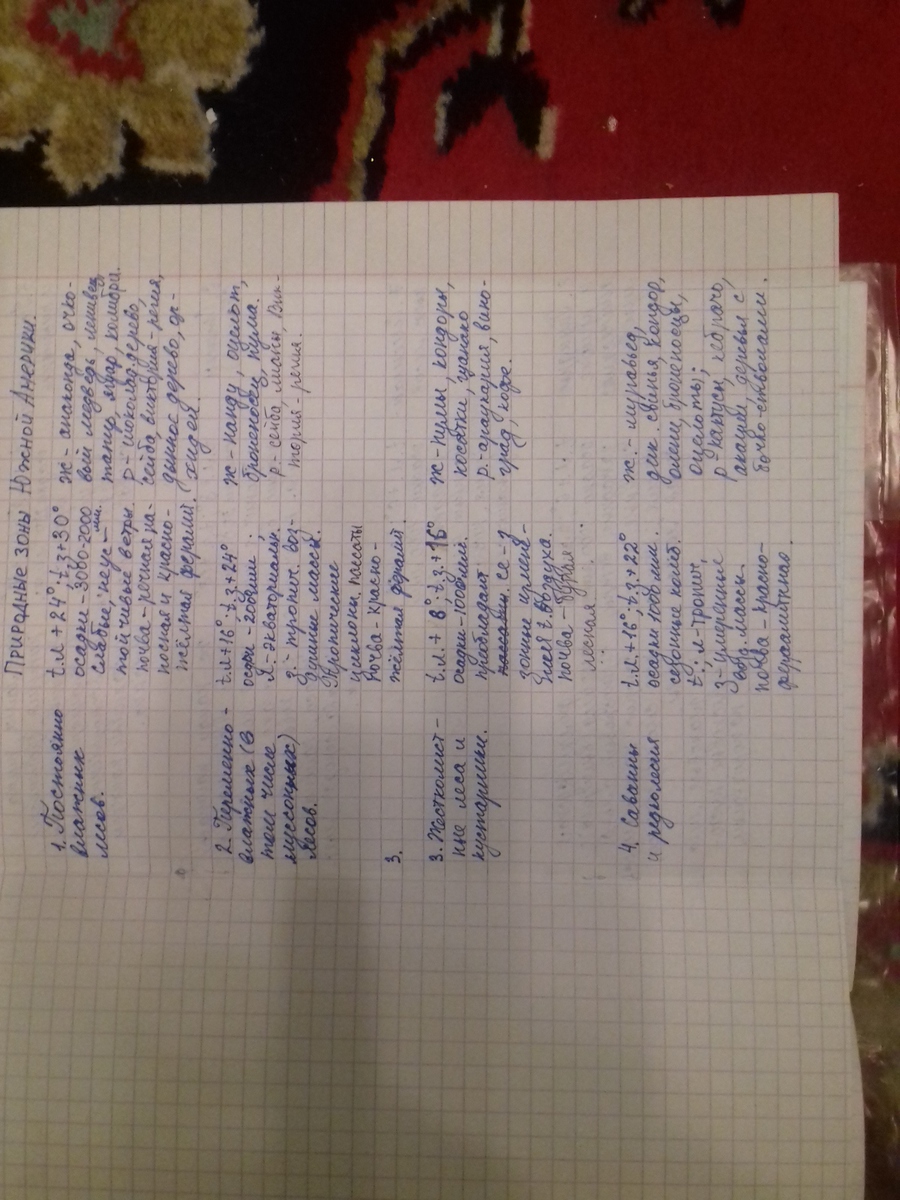 Природные зоны Южной Америки.
1. Постоянно
влажных
лесов.
t.л + 24°. t.з + 30°
осадки - 3000-2000
слабые неус- мм.
тойчивые ветры
почва - речная на-
носная и красно-
жёлтая ферали.
ж - анаконда, очко-
вый медведь, ленивец
тапир, ягуар, колибри.
р - шоколад. дерево,
сейба, виктория - регия,
дынное дерево, ор-
хидея.
2. Переменно -
влажных (в
том числе
муссонных)
лесов.
t.л +16° t.з +24°
осадки - 2000мм.
Л. - экваториальн.
З. - тропич. воз-
душные массы.
Тропические
циклоны, пассаты
почва - красно -
жёлтая ферали
ж - нанду, оцелот,
броненосец, пума.
р - сейба, лианы, Вик-
тория - регия.
3.
3. Жестколист -
ные леса и
кустарники.
t.л. + 8° t.з. + 16°
осадки - 1000мм.
преобладает
се -
зонные измене-
ния t воздуха.
почва - бурая
лесная
ж - пумы, кондоры,
косатки, гуанако
р - араукария, вино-
град, кофе.
4. Саванны
и редколесия
t.л. +16° t.з +22°
осадки 1000мм.
сезонные колеб.
t°; л - тропич,
З - умеренные
возд. массы.
почва - красно-
фераллитная.
ж. - муравьед,
дик. свинья, кондор,
олени, броненосцы,
оцелоты;
р - кактусы, кебрачо,
акации, деревья с
бочко-стволами.